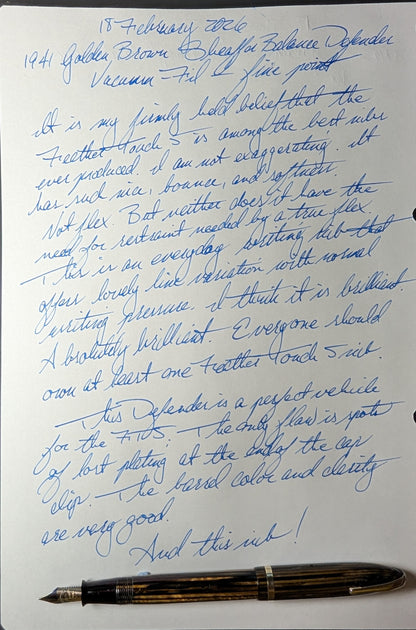 18 February 2026
1941 Golden Brown Sheaffer Balance Defender
Vacuum-Fil & fine point
It is my firmly held belief that the
Feather Touch 5 is among the best nibs
ever produced. I am not exaggerating. It
has such nice, bounce, and softness.
Not flex. But neither does it have the
need for restraint needed by a true flex
This is an everyday writing nib that
offers lovely line variation with normal
writing pressure. I think it is brilliant.
Absolutely brilliant. Everyone should
own at least one Feather Touch 5 nib.
This Defender is a perfect vehicle
for the FT5. The only flaw is spots
of lost plating at the end of the cap
clip. The barrel color and clarity
are very good.
And this nib!